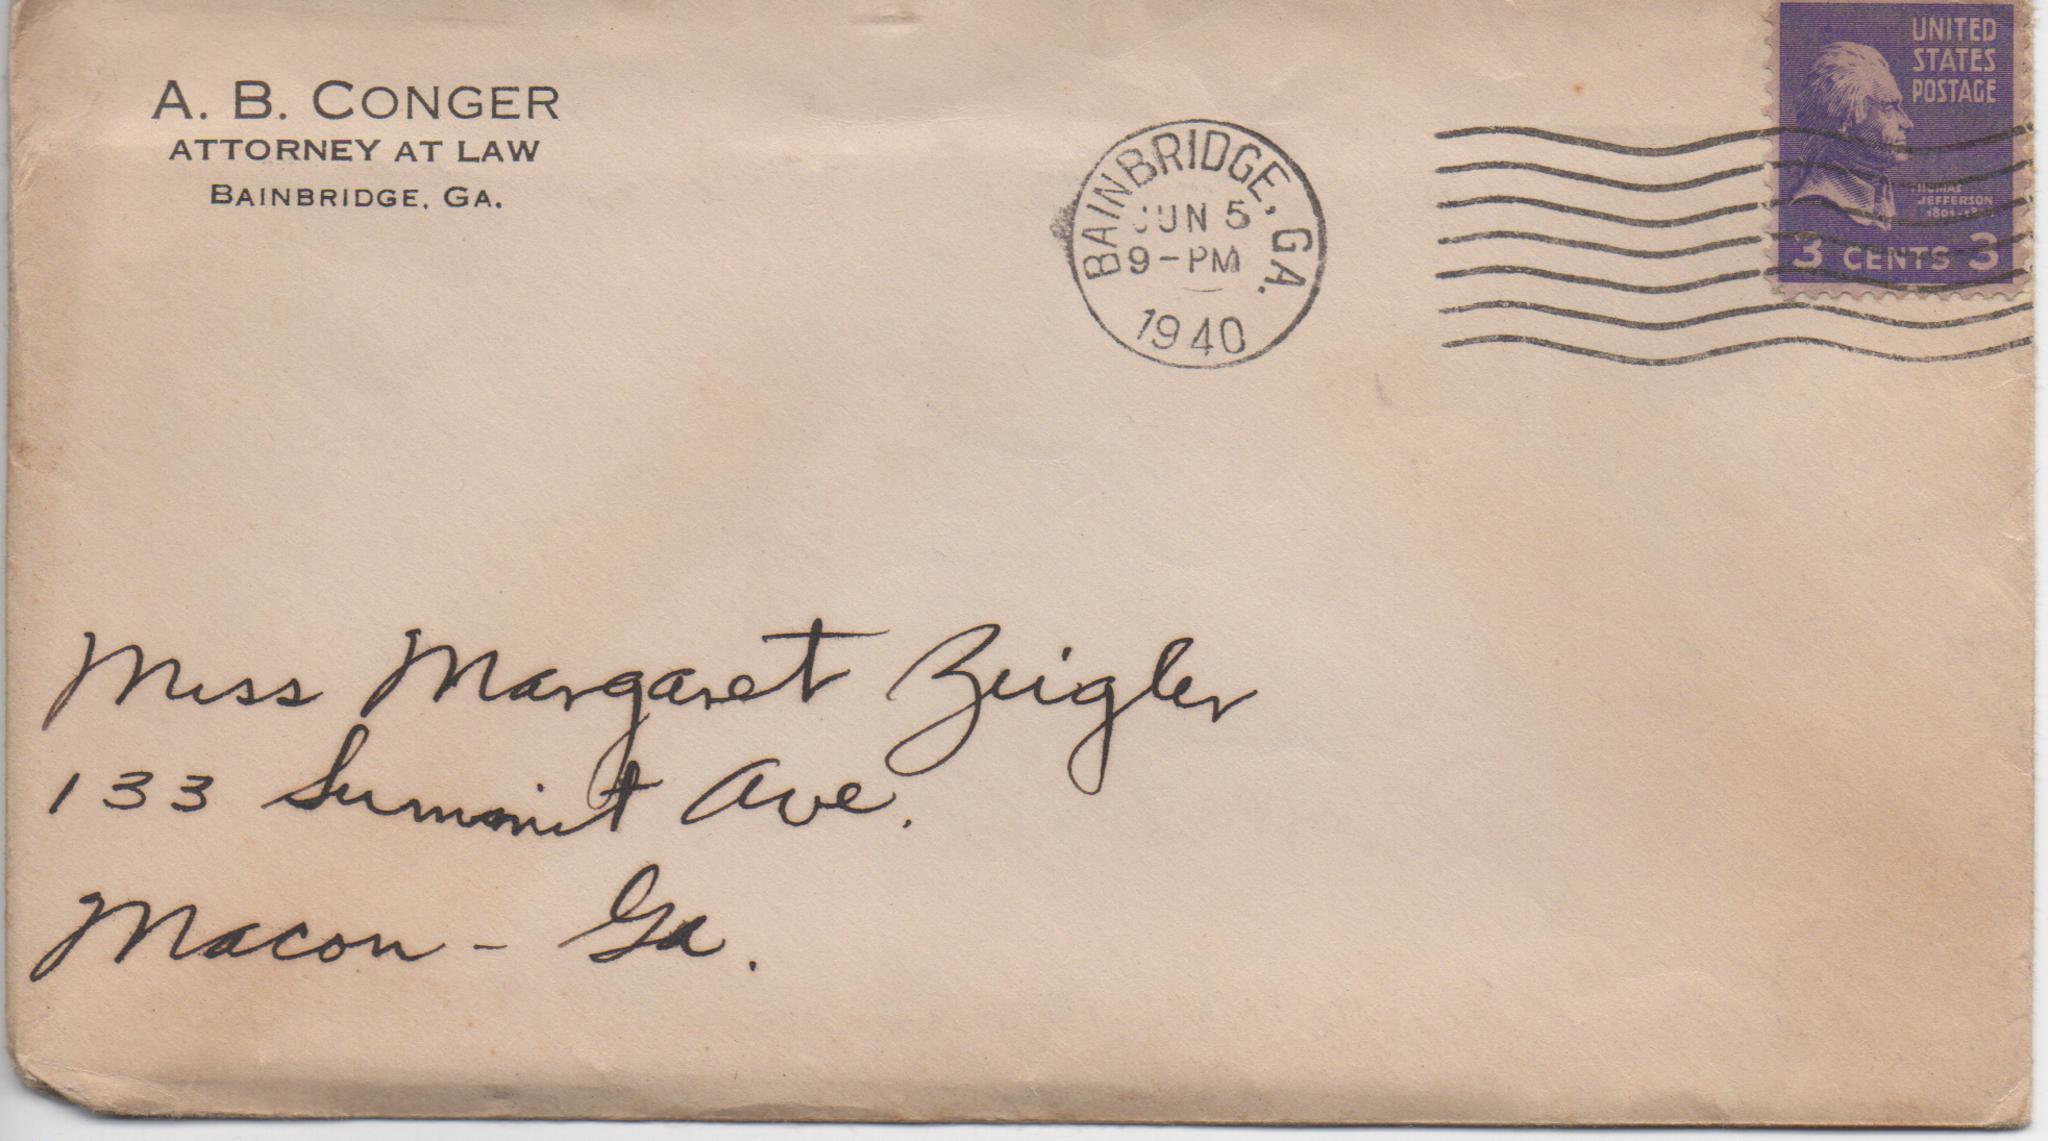 A. B. CONGER
ATTORNEY AT LAW
BAINBRIDGE, GA.
BAINBRIDGE, GA.
JUN 5
9-PM
1940
UNITED
STATES
POSTAGE
THOMAS
JEFFERSON
3 CENTS 3
Miss Margaret Zeigler
133 Summit Ave.
Macon - Ga.